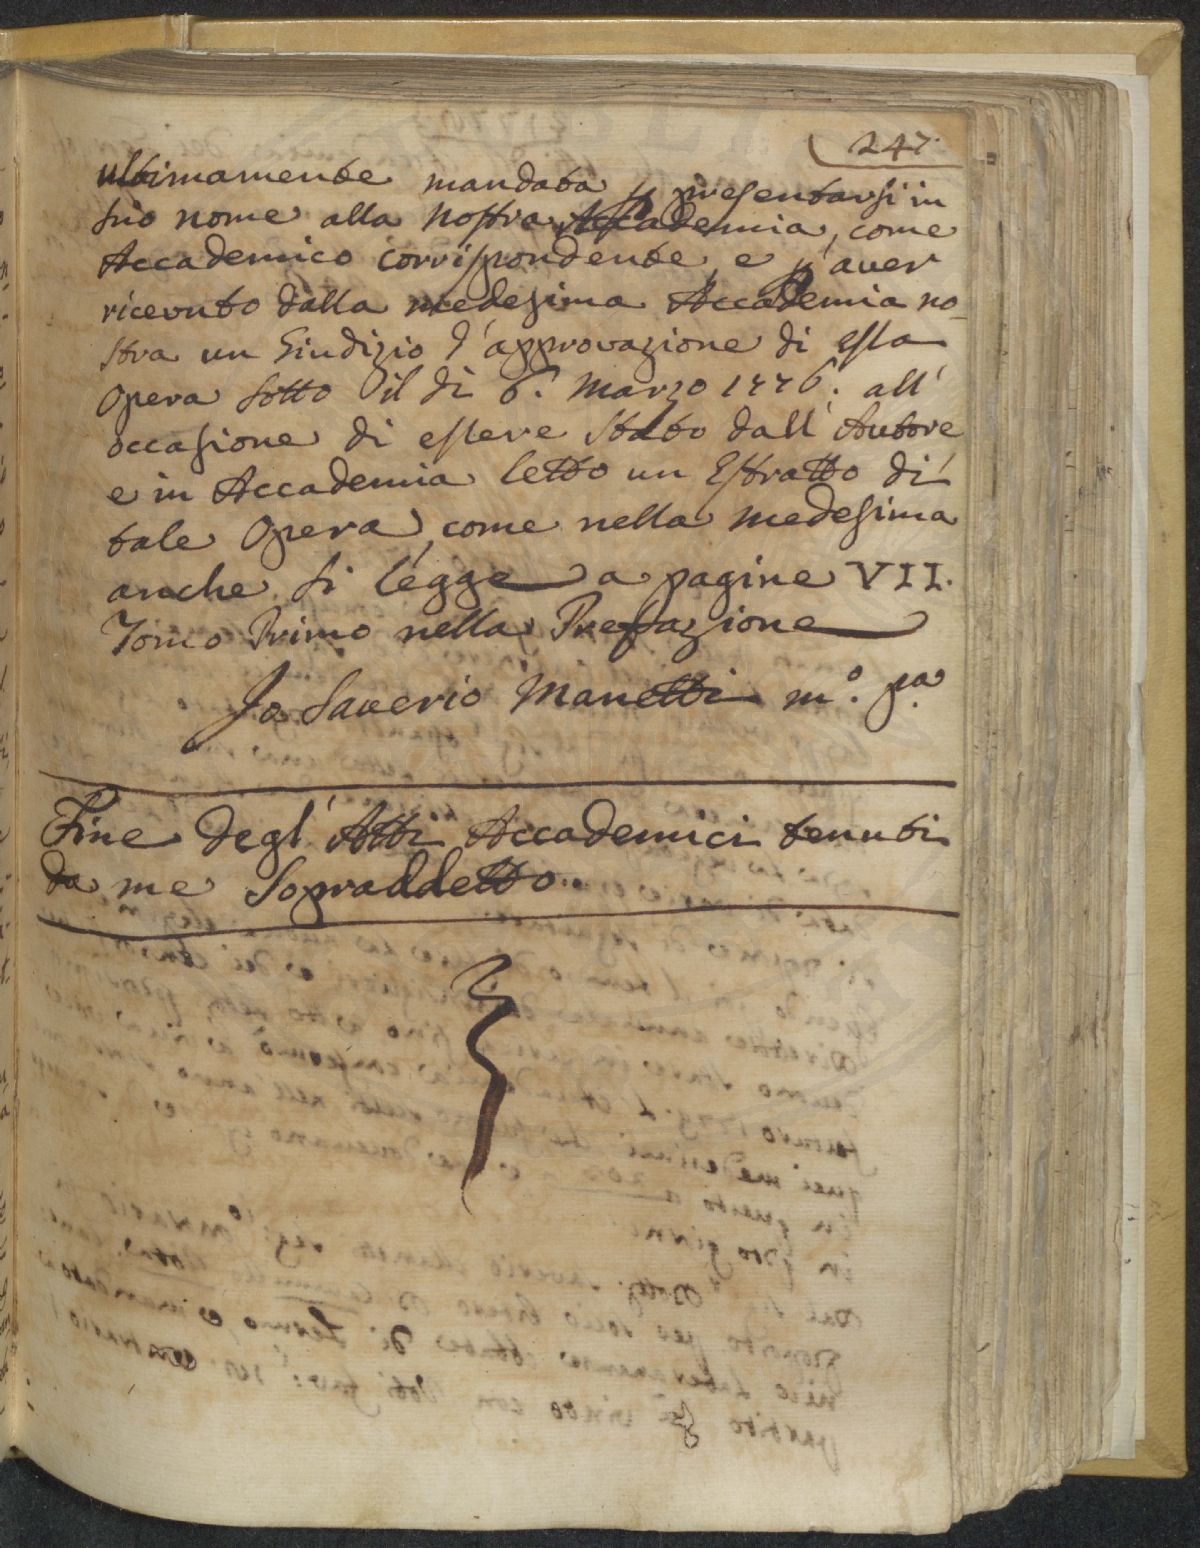 247.
ultimamente mandata p presentarsi in
suo nome alla nostra Accademia, come
Accademico corrispondente, e p auer
riceuuto dalla medesima Accademia no-
stra un Giudizio d'approvazione di essa
Opera sotto il dì 6. Marzo 1776. all'
occasione di essere stato dall'Autore
e in Accademia letto un Estratto di
tale Opera, come nella medesima
anche si legge a pagine VII.
Tomo Primo nella Prefazione
Io Saverio Manetti m.º p.ª
Fine degl'Atti Accademici tenuti
da me Sopraddetto.